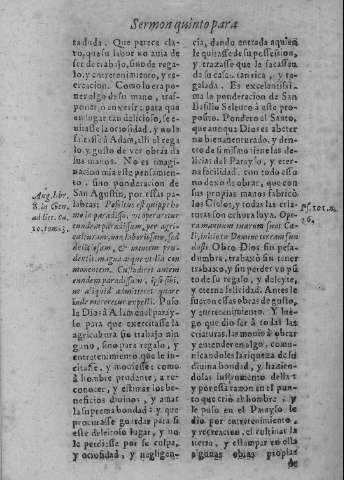 Sermon quinto para
taduda. Que parece cla-
ro, que su labor no auia de
ser de trabajo, sino de rega-
lo, y entretenimiento, y re-
creacion. Como lo era po-
ner algo de su mano, tras-
poner, o enxerir: para que
en lugar tan delicioso, se e-
uitasse la ociosidad, y no la
faltasse a Adam, alli el rega
lo, y gusto de ver obras de
sus manos. No es imagi-
nacion mia este pensamien-
to, sino ponderacion de
San Agustin, por estas pa-
labras: Positus est quippe ho-
mo in paradiso, vt operaretur
eundem paradisum, per agri-
culturam, non laboriosam, sed
deliciosam, & mentem pru-
dentis, magna atque vtilia com
monentem. Custodiret autem
eundem paradisum, ipsi sibi,
ne aliquid admitteret quare
inde mereretur expelli. Puso
le Dios à Adam en el paray-
so para que exercitasse la
agricultura sin trabajo nin
guno, sino para regalo, y
entretenimiento que le in-
citasse, y mouiesse: como
à hombre prudente, a re-
conocer, y estimar los be-
neficios diuinos, y amar
la suprema bondad: y que
procurasse guardar para si
este deleitoso lugar, y no
le perdiesse por su culpa,
y ociosidad, y negligen-
Aug. libr.
8. in Gen.
ad lit. ca.
10. tom. 3.
cia, dando entrada a quien
le quitasse de su possession,
y traçasse que le sacassen
de su casa tan rica, y re-
galada. Es excelentissi-
ma la ponderacion de San
Basilio Seleuco à este pro-
posito. Pondero el Santo,
que aunque Dios es abeter
no bienauenturado, y den-
tro de si mismo tiene las de-
licias del Parayso, y eter-
na felicidad. con todo esso
no dexo de obrar, que con
sus propias manos fabricò
los Cielos, y todas las cria
turas son echura suya. Ope-
ra manuum tuarum sunt Cæ-
li, initio tu Domine terram fun
dasti. Obro Dios sin pesa-
dumbre, trabaxò sin tener
trabaxo, y sin perder vn pũ
to de su regalo, y deleyte,
y eterna felicidad. Antes le
fueron essas obras de gusto,
y entretenimiento. Y lue-
go que dio ser à todas las
criaturas, las mouio à obrar
y entender en algo. comu-
nicandoles la riqueza de su
diuina bondad, y hazien-
dolas instrumento della:
y por essa razon en el pun-
to que criò al hombre, y
le puso en el Parayso le
dio por entretenimiento,
y recreacion, el cultiuar la
tierra, y estampar en ella
algunas obras propias
de
Ps. 101. n.
26.